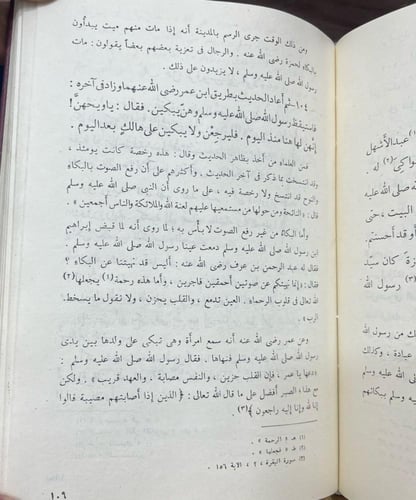 ومن ذلك الوقت جرى الرسم بالمدينة أنه إذا مات منهم ميت يبدأون
بالبكاء لحمزة رضى الله عنه . والرجال فى تعزية بعضهم بعضاً يقولون : مات
رسول الله صلى الله عليه وسلم ، لا يزيدون على ذلك .
١٠٤ - ثم أعاد الحديث بطريق ابن عمر رضى الله عنهما وزاد فى آخره :
فاستيقظ رسول الله صلى الله عليه وسلم وهن يبكين . فقال : يا ويحهن !
إنهن لها هنا منذ اليوم . فليرجعن ولا يبكين على هالك بعد اليوم .
فمن العلماء من أخذ بظاهر الحديث وقال : هذه رخصة كانت يومئذ ،
وقد انتسخت بما ذكر فى آخر الحديث . وأكثرهم على أن رفع الصوت بالبكاء
والنوح قد انتسخ ولا رخصة فيه ، على ما روى أن النبى صلى الله عليه وسلم
قال : « النائحة ومن حولها من مستمعيها عليهم لعنة الله والملائكة والناس أجمعين » .
وأما البكاء من غير رفع الصوت لا بأس به ؛ لما روى أنه لما قبض إبراهيم
ابن رسول الله صلى الله عليه وسلم دمعت عينا رسول الله صلى الله عليه وسلم .
فقال له عبد الرحمن بن عوف رضى الله عنه : أليس قد نهيتنا عن البكاء ؟
فقال : « إنما نهيتكم عن صوتين أحمقين فاجرين ، وأما هذه رحمة (١) يجعلها (٢)
الله تعالى فى قلوب الرحماء . العين تدمع ، والقلب يحزن ، ولا نقول ما يسخط
الرب » .
وعن عمر رضى الله عنه أنه سمع امرأة وهى تبكى على ولدها بين يدى
رسول الله صلى الله عليه وسلم فنهاها . فقال رسول الله صلى الله عليه وسلم :
« دعها يا عمر ، فإن القلب حزين ، والنفس مصابة ، والعهد قريب » . ولكن
مع هذا الصبر أفضل على ما قال الله تعالى : { الذين إذا أصابتهم مصيبة قالوا
إنا لله وإنا إليه راجعون } (٣) .
(١) هـ « الرحمة » .
(٣) سورة البقرة ، ٢ ، الآية ١٥٦
١٠٩